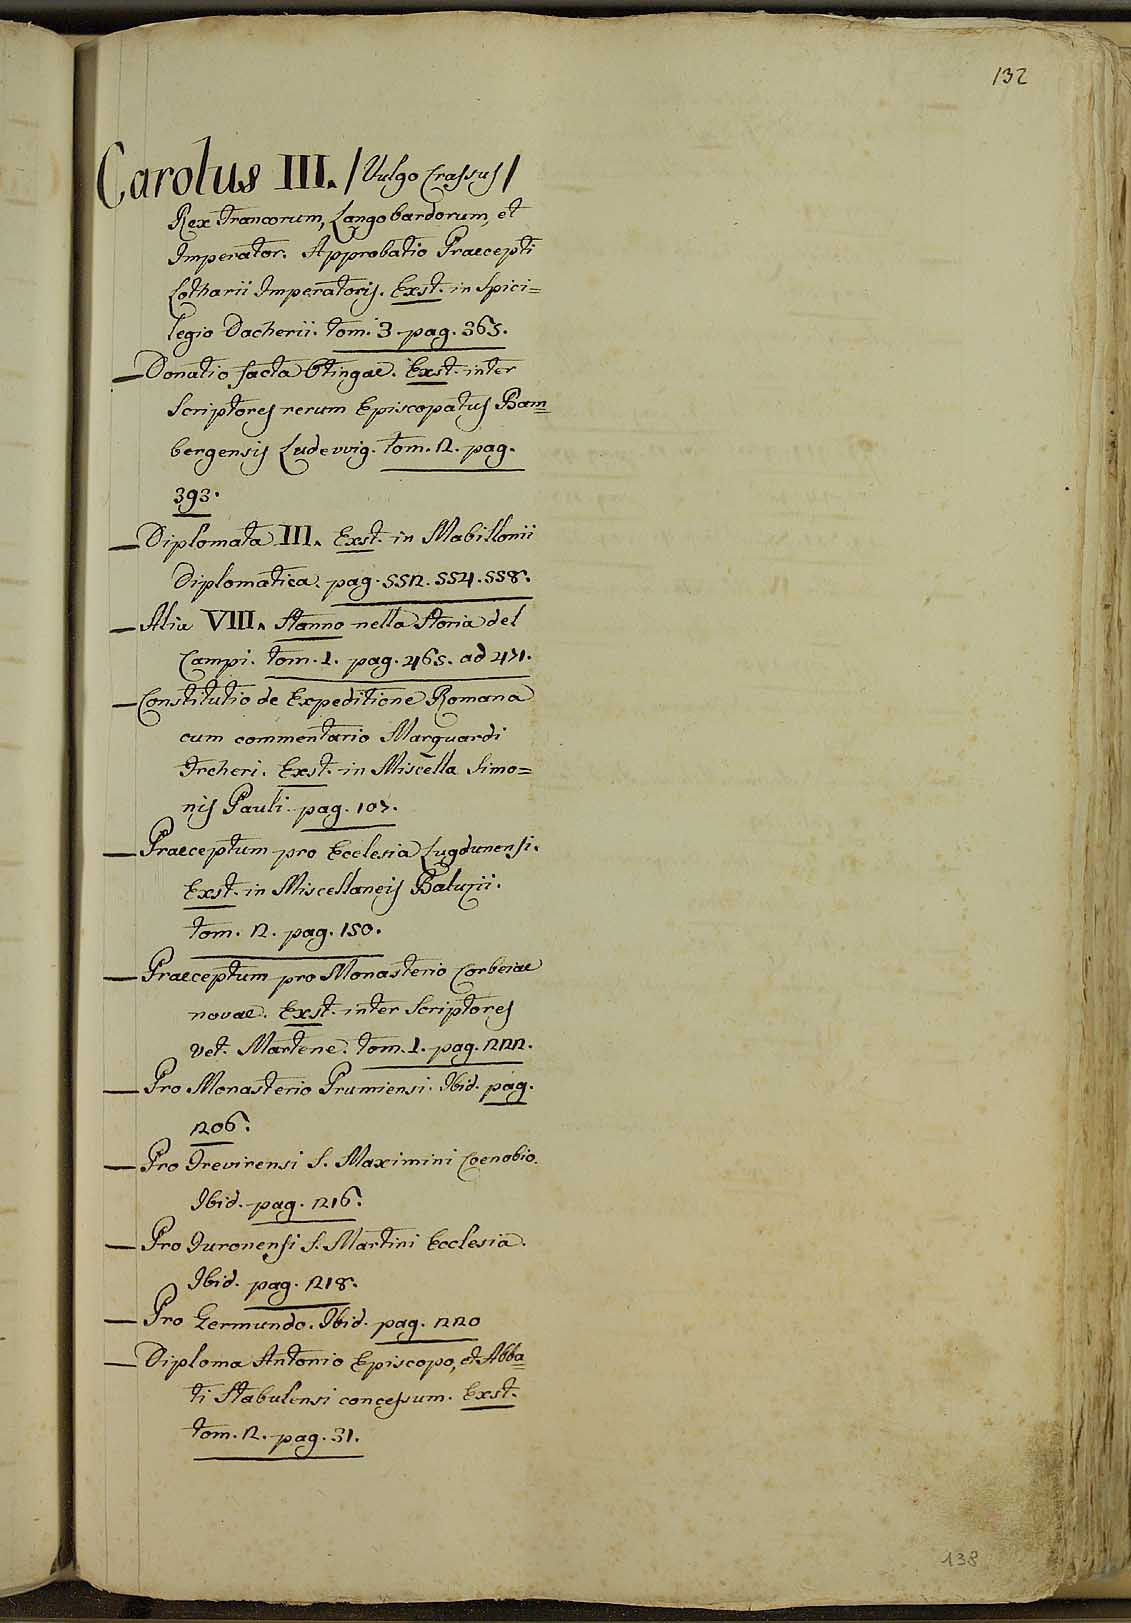 132
Carolus III. /Vulgo Crassus/
Rex Francorum, Langobardorum, et
Imperator. Approbatio Praecepti
Lotharii Imperatoris. Exst. in Spici=
legio Dacherii. tom. 3. pag. 365.
— Donatio facta Otingae. Exst. inter
Scriptores rerum Episcopatus Bam=
bergensis Ludewig. tom. 2. pag.
393.
— Diplomata III. Exst. in Mabillonii
Diplomatica. pag. 552. 554. 558.
— Alia VIII. Stanno nella Storia del
Campi. tom. 1. pag. 465. ad 471.
— Constitutio de Expeditione Romana
cum commentario Marquardi
Freheri. Exst. in Miscella Simo=
nis Pauli. pag. 107.
— Praeceptum pro Ecclesia Lugdunensi.
Exst. in Miscellaneis Baluzii.
tom. 2. pag. 150.
— Praeceptum pro Monasterio Corbeiae
novae. Exst. inter Scriptores
vet. Martene. tom. 1. pag. 222.
— Pro Monasterio Prumiensi. Ibid. pag.
206.
— Pro Trevirensi S. Maximini Coenobio.
Ibid. pag. 216.
— Pro Turonensi S. Martini Ecclesia.
Ibid. pag. 218.
— Pro Germundo. Ibid. pag. 220
— Diploma Antonio Episcopo, et Abba=
ti Stabulensi concessum. Exst.
tom. 2. pag. 31.
138